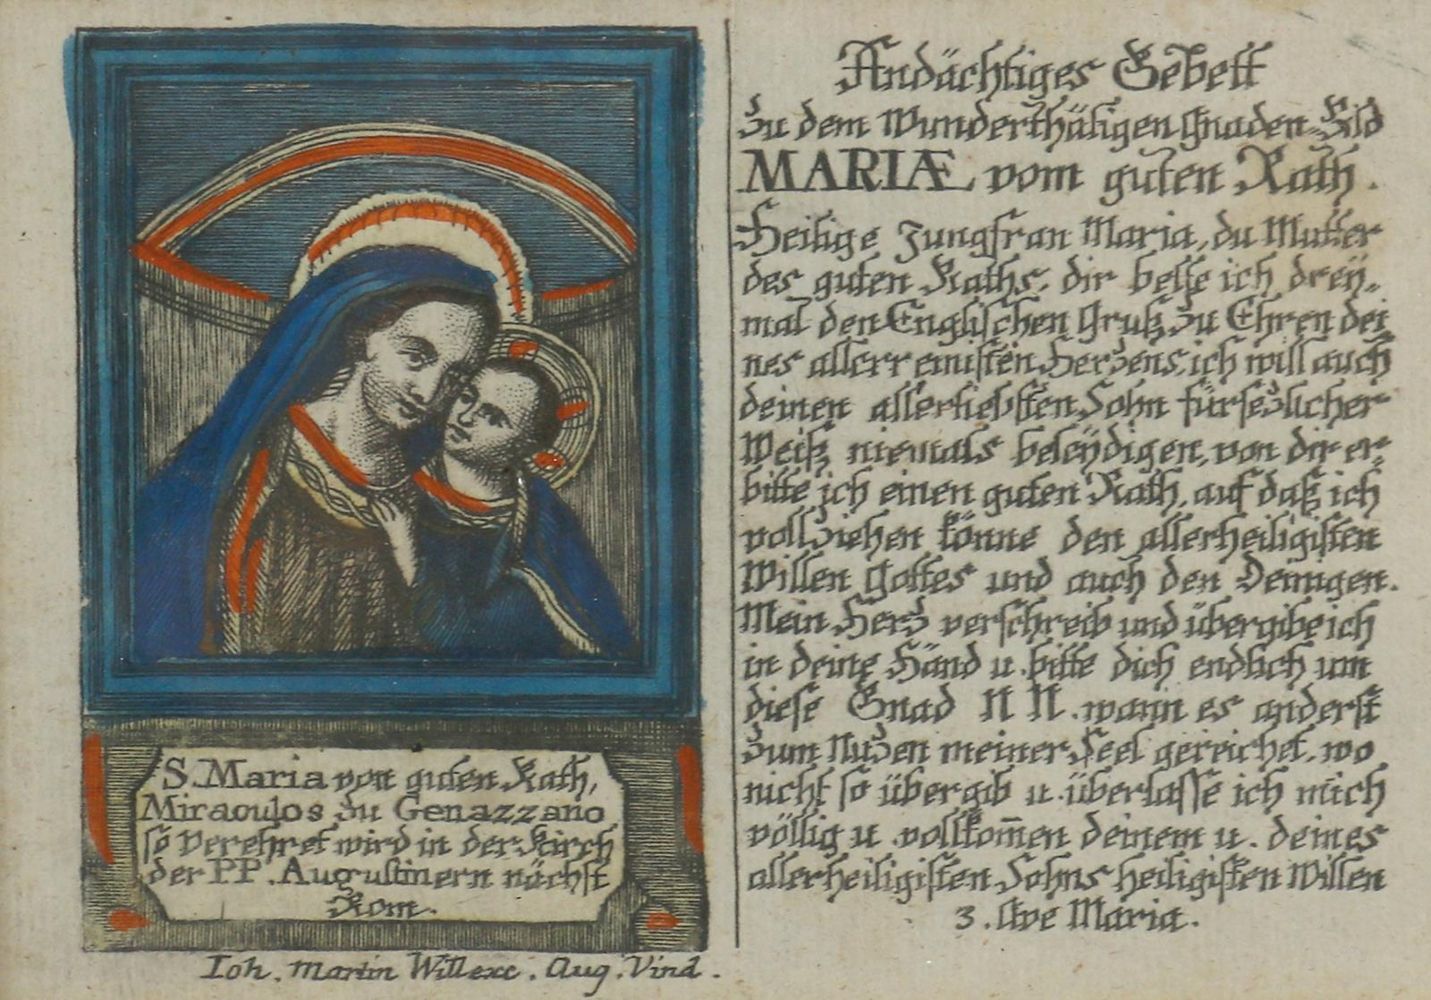 S. Maria von guten Rath,
Miraculos zu Genazzano
so verehret wird in der Kirch
der PP. Augustinern nächst
Rom.
Ioh. Martin Will exc. Aug. Vind.
Andächtiges Gebett
zu dem wunderthätigen Gnaden-Bild
MARIÆ vom guten Rath.
Heilige Jungfrau Maria, du Mutter
des guten Raths, dir bette ich dreÿ-
mal den Englischen Gruß zu Ehren dei
nes allerreinisten Herzens, ich will auch
deinen allerliebsten Sohn fürsezlicher
Weiß niemals beleÿdigen, von dir er-
bitte ich einen guten Rath, auf daß ich
vollziehen könne den allerheiligisten
Willen Gottes und auch den Deinigen.
Mein Herz verschreib und übergibe ich
in deine Händ u. bitte dich endlich um
diese Gnad N N. wann es anderst
zum Nuzen meiner Seel gereichet, wo
nicht so übergib u. überlasse ich mich
völlig u. vollkom̅en deinem u. deines
allerheiligisten Sohns heiligisten Willen
3. Ave Maria.